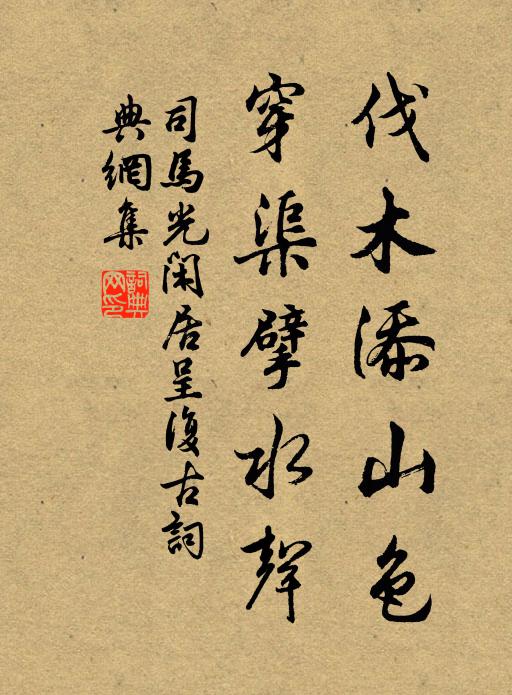 伐木添山色
穿渠擘水聲
司馬光閑居呈復古詞
典網集
詞典
网印